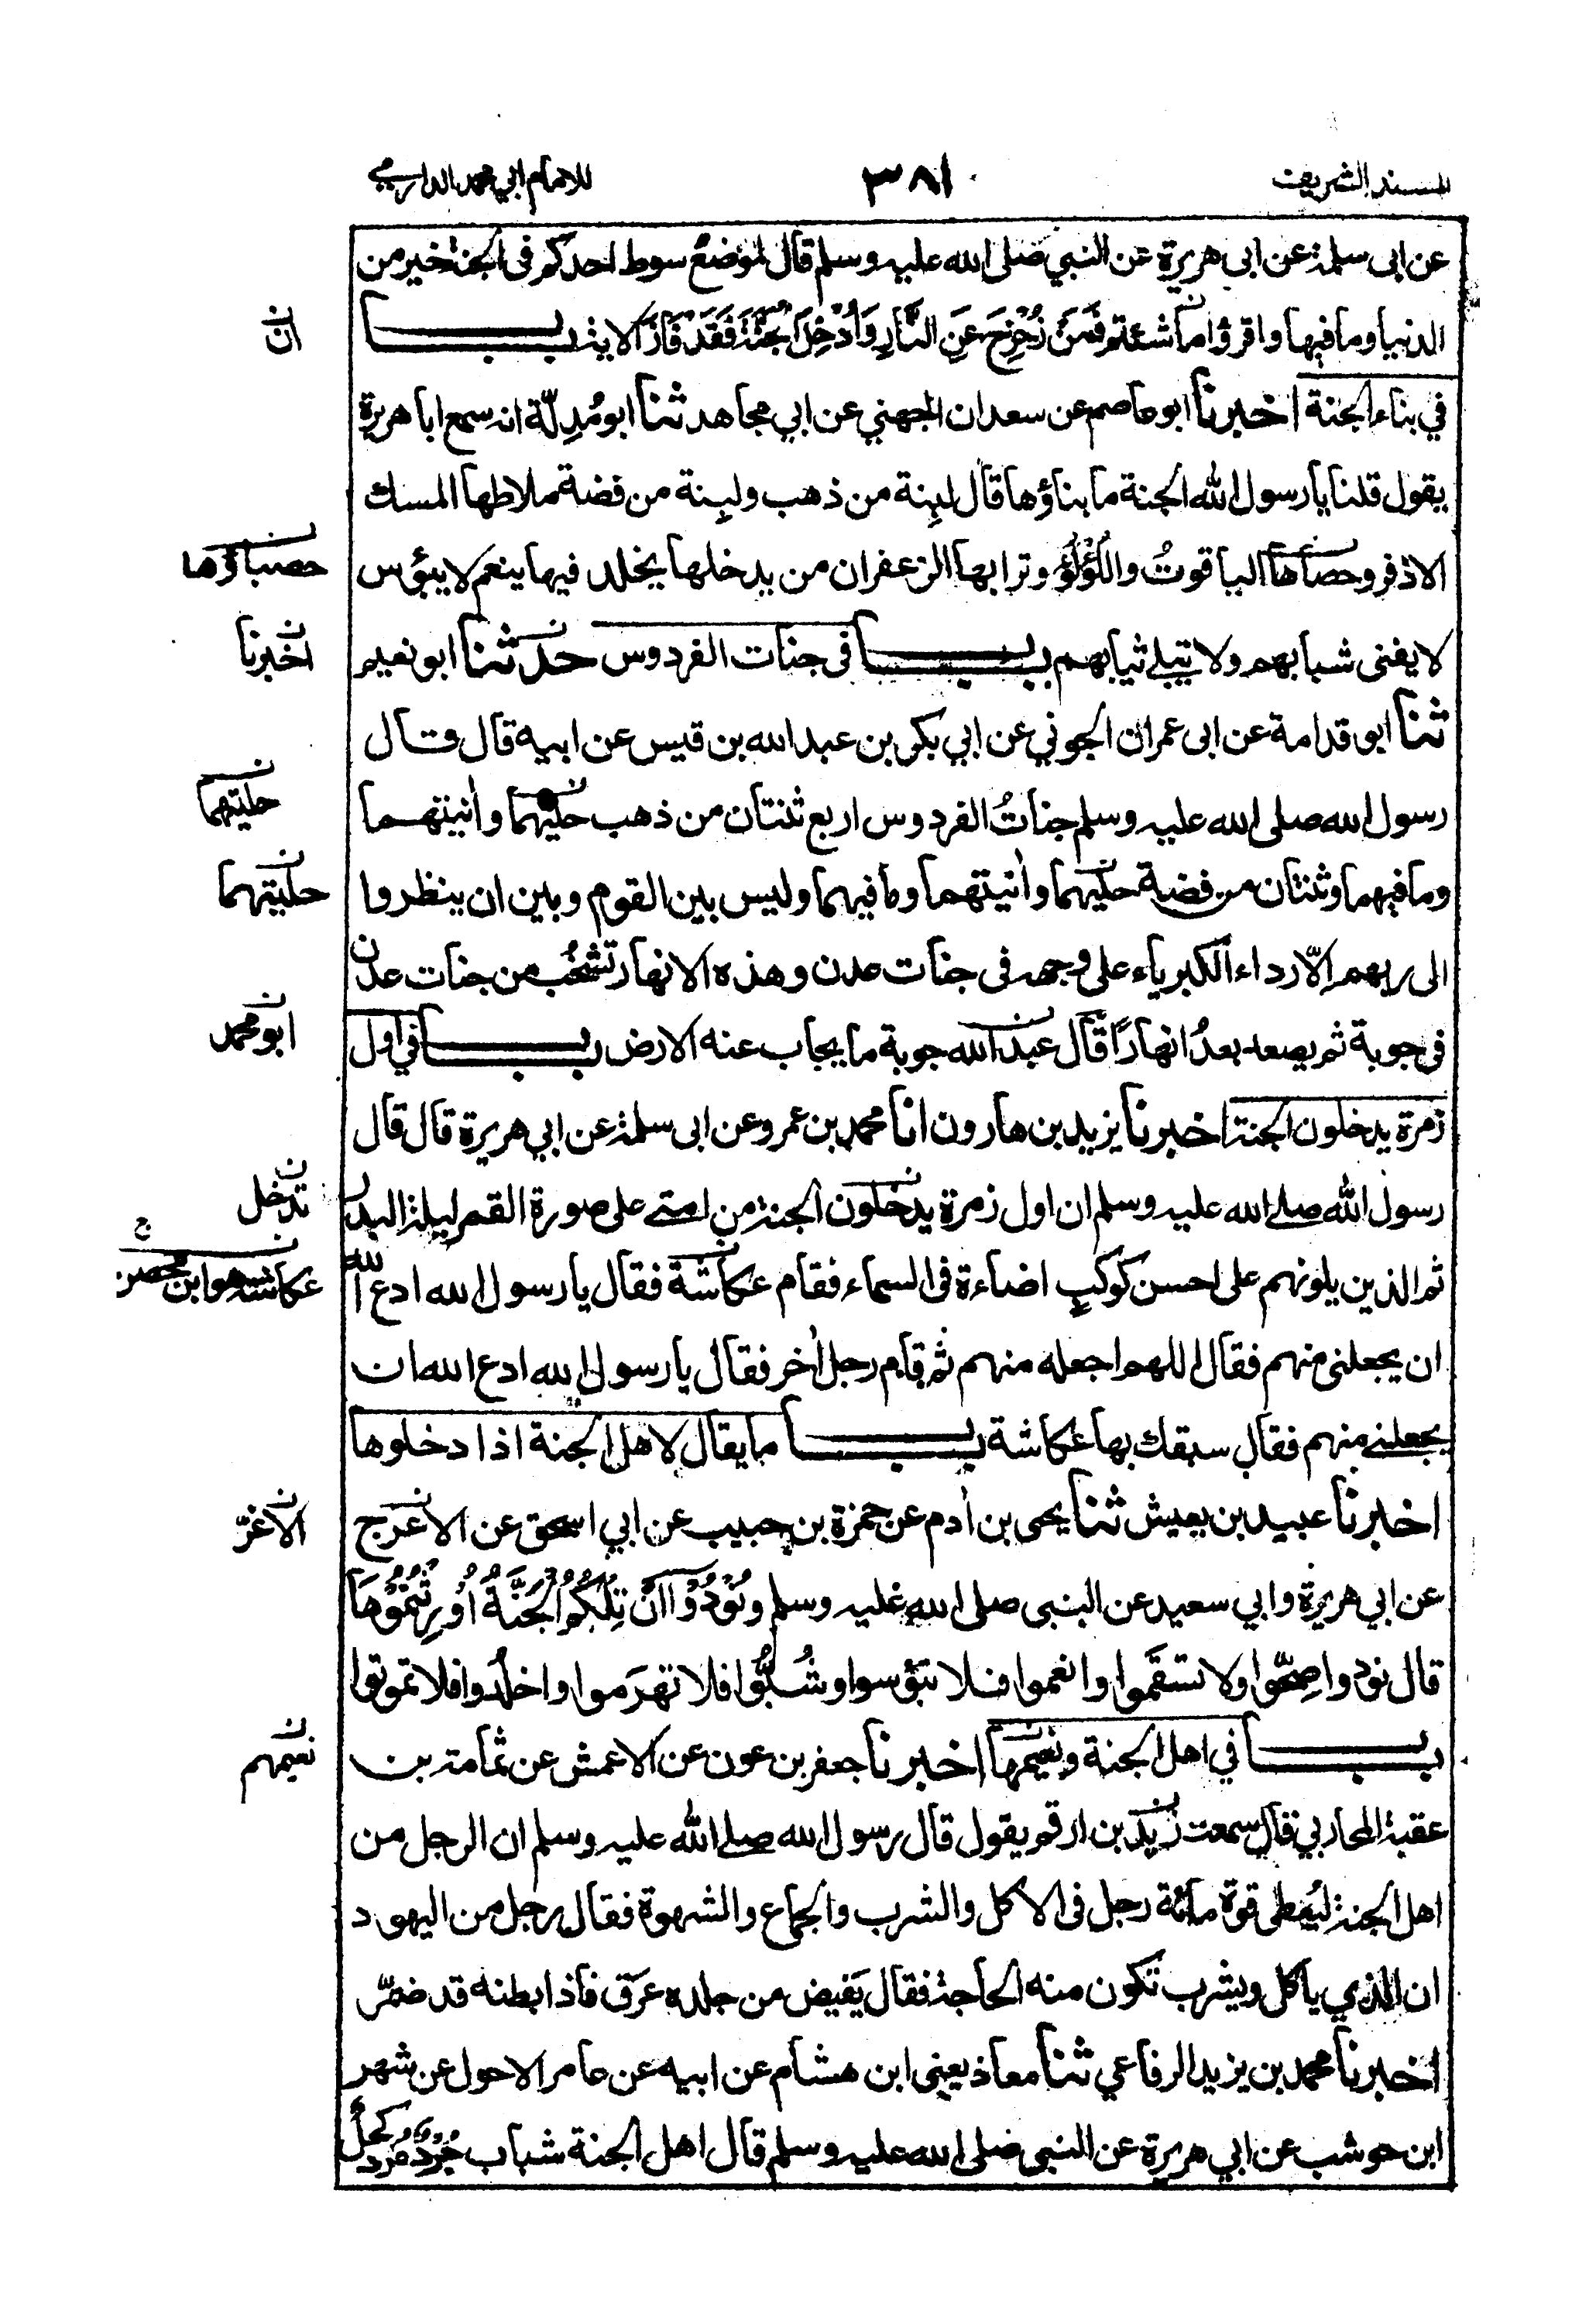 المسند الشريف ٣٨١ للامام ابي محمد الدارمي
عن ابى سلمة عن ابى هريرة عن النبي صلى الله عليه وسلم قال لموضع سوط احدكم فى الجنة خير من
الدنيا وما فيها واقرؤا ما شئتم فَمَنْ زُحْزِحَ عَنِ النَّارِ وَأُدْخِلَ الْجَنَّةَ فَقَدْ فَازَ الاية باب
ان
في بناء الجنة اخبرنا ابو عاصم عن سعدان الجهني عن ابي مجاهد ثنا ابو مُدِلّة انه سمع ابا هريرة
يقول قلنا يا رسول الله الجنة ما بناؤها قال لبِنة من ذهب ولبِنة من فضة ملاطها المسك
الاذفر وحصاها الياقوتُ واللؤلؤُ وترابها الزعفران من يدخلها يخلد فيها ينعم لا يبؤس
حصباؤها
لا يفنى شبابهم ولا تبلى ثيابهم باب فى جنات الفردوس حدثنا ابو نعيم
اخبرنا
ثنا ابو قدامة عن ابى عمران الجوني عن ابي بكر بن عبد الله بن قيس عن ابيه قال قال
رسول الله صلى الله عليه وسلم جناتُ الفردوس اربع ثنتان من ذهب حليهما وأنيتهما
حليتهما
وما فيهما وثنتان من فضة حليهما وأنيتهما وما فيهما وليس بين القوم وبين ان ينظروا
حليتهما
الى ربهم اِلّا رداء الكبرياء على وجهه فى جنات عدن وهذه الانهار تشخُب من جنات عدن
فى جوبة ثم يصعد بعدُ انهارًا قال عبد الله جوبة ما يجاب عنه الارض باب في اول
ابو محمد
زمرة يدخلون الجنة اخبرنا يزيد بن هارون انا محمد بن عمرو عن ابى سلمة عن ابي هريرة قال قال
رسول الله صلى الله عليه وسلم ان اول زمرة يدخلون الجنة من امتى على صورة القمر ليلة البدر
تدخل
ثم الذين يلونهم على احسن كوكبٍ اضاءة فى السماء فقام عكاشة فقال يا رسول الله ادع الله
عكاشة هو ابن محصن
ان يجعلنى منهم فقال اللهم اجعله منهم ثم قام رجل أخر فقال يا رسول الله ادع الله ان
يجعلنى منهم فقال سبقك بها عكاشة باب ما يقال لاهل الجنة اذا دخلوها
اخبرنا عبيد بن يعيش ثنا يحيى بن أدم عن حمزة بن حبيب عن ابي اسحق عن الاعرج
الاغرّ
عن ابي هريرة وابي سعيد عن النبى صلى الله عليه وسلم وَنُوْدُوْآ اَنْ تِلْكُمُ الْجَنَّةُ اُوْرِثْتُمُوْهَا
قال نودوا صِحّوا ولا تسقَموا وانعموا فلا تبؤسوا وشُبُّوا فلا تهرَموا واخلُدوا فلا تموتوا
باب في اهل الجنة ونعيمها اخبرنا جعفر بن عون عن الاعمش عن ثمامة بن
نعيمهم
عقبة المحاربي قال سمعت زيد بن ارقم يقول قال رسول الله صلى الله عليه وسلم ان الرجل من
اهل الجنة ليُعطى قوة مائة رجل فى الاكل والشرب والجماع والشهوة فقال رجل من اليهود
ان الذي ياكل ويشرب تكون منه الحاجة فقال يَفيض من جلده عرَق فاذا بطنه قد ضمّر
اخبرنا محمد بن يزيد الرفاعي ثنا معاذ يعنى ابن هشام عن ابيه عن عامر الاحول عن شهر
ابن حوشب عن ابي هريرة عن النبى صلى الله عليه وسلم قال اهل الجنة شباب جُرْدٌ مُرْدٌ كحلٌ